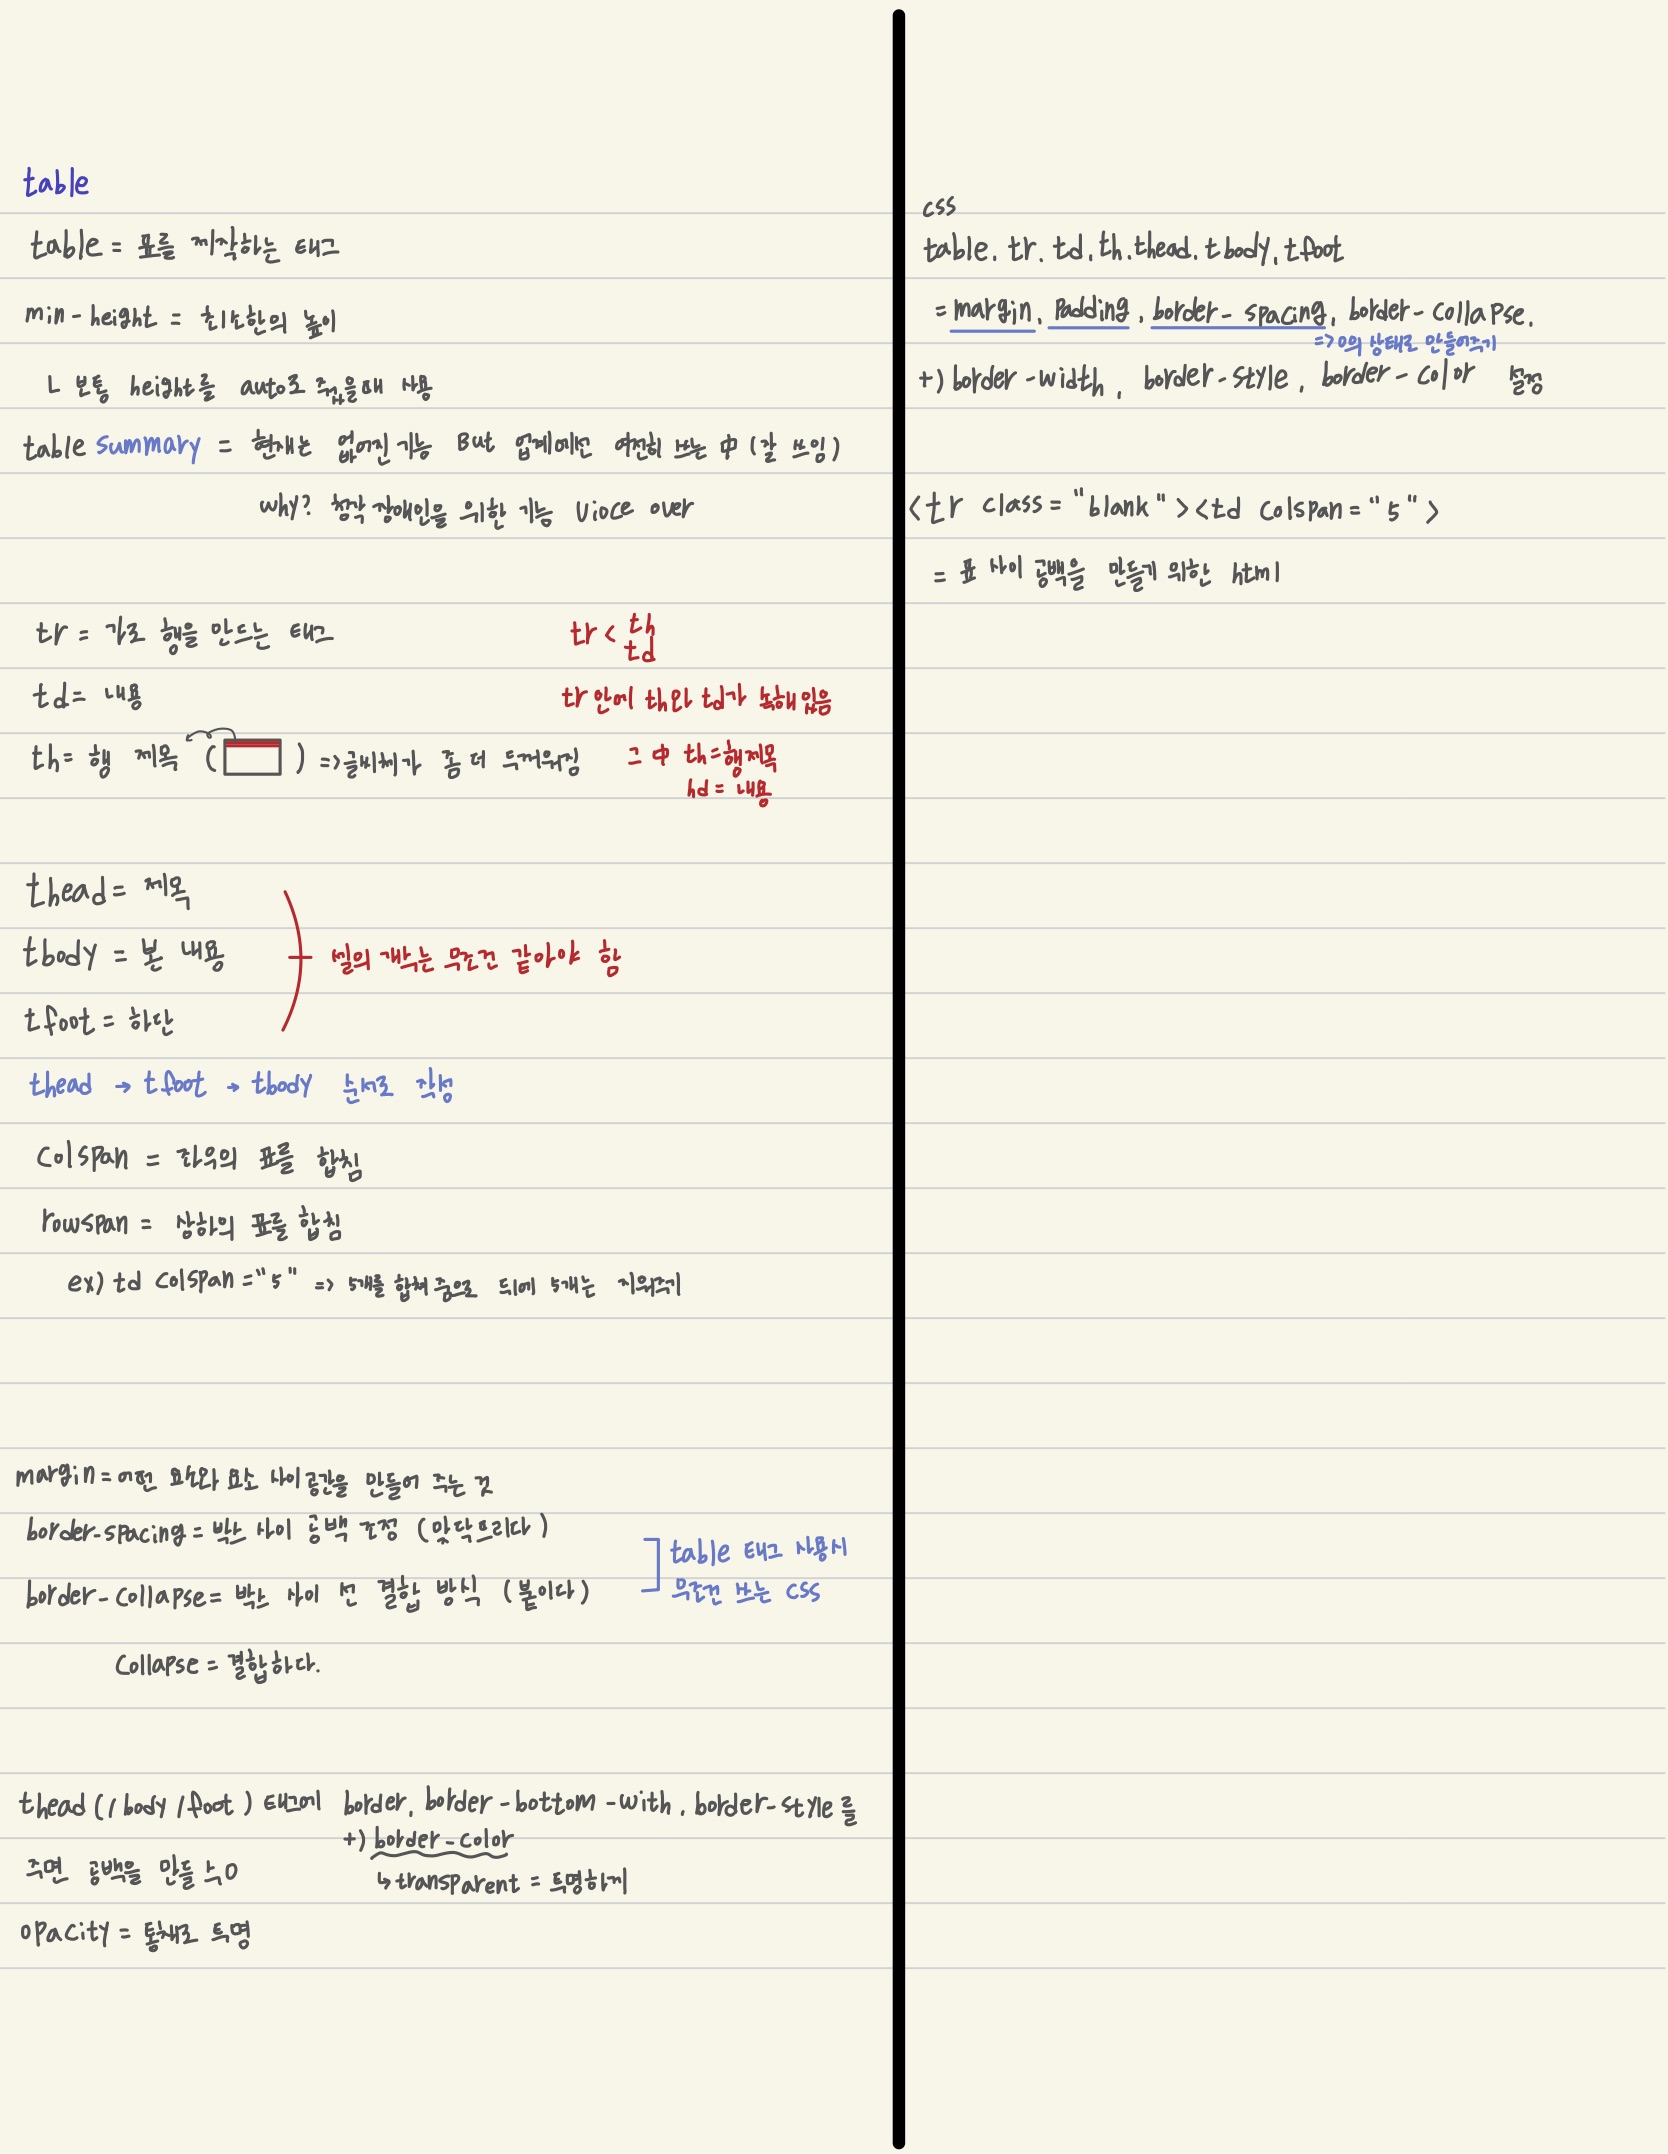 table
table = 표를 제작하는 태그
min-height = 최소한의 높이
ㄴ 보통 height를 auto로 줬을때 사용
table summary = 현재는 없어진 기능 But 업계에선 여전히 쓰는 中 (잘 쓰임)
why? 청각 장애인을 위한 기능 Vioce over
tr = 가로 행을 만드는 태그
tr < th
td
td = 내용
tr 안에 th와 td가 속해있음
th = 행 제목 ( ) => 글씨체가 좀 더 두꺼워짐
그 中 th = 행제목
hd = 내용
thead = 제목
tbody = 본 내용
tfoot = 하단
셀의 개수는 무조건 같아야 함
thead → tfoot → tbody 순서로 작성
colspan = 좌우의 표를 합침
rowspan = 상하의 표를 합침
ex) td colspan="5" => 5개를 합쳐줌으로 뒤에 5개는 지워주기
margin = 어떤 요소와 요소 사이 공간을 만들어 주는 것
border-spacing = 박스 사이 공백 조정 (맞닥뜨리다)
border-collapse = 박스 사이 선 결합 방식 (붙이다)
table 태그 사용시
무조건 쓰는 css
collapse = 결합하다.
thead (/body /foot) 태그에 border, border-bottom-with, border-style를
+) border-color
주면 공백을 만들 수 o
↳ transparent = 투명하게
opacity = 통채로 투명
css
table. tr. td. th. thead. tbody. tfoot
= margin. padding. border-spacing, border-collapse.
=> 0의 상태로 만들어주기
+) border-width, border-style, border-color 설정
<tr class="blank"><td colspan="5">
= 표 사이 공백을 만들기 위한 html